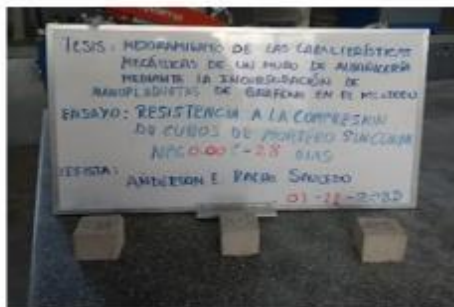 TESIS: MEJORAMIENTO DE LAS CARACTERÍSTICAS
MECÁNICAS DE UN MURO DE ALBAÑILERÍA
MEDIANTE LA INCORPORACIÓN DE
NANOPLAQUETAS DE GRAFENO EN EL MORTERO
ENSAYO: RESISTENCIA A LA COMPRESION
DE CUBOS DE MORTERO SIN CURAR
0.00 -28 DIAS
TESISTA: ANDERSON E. SAUCEDO